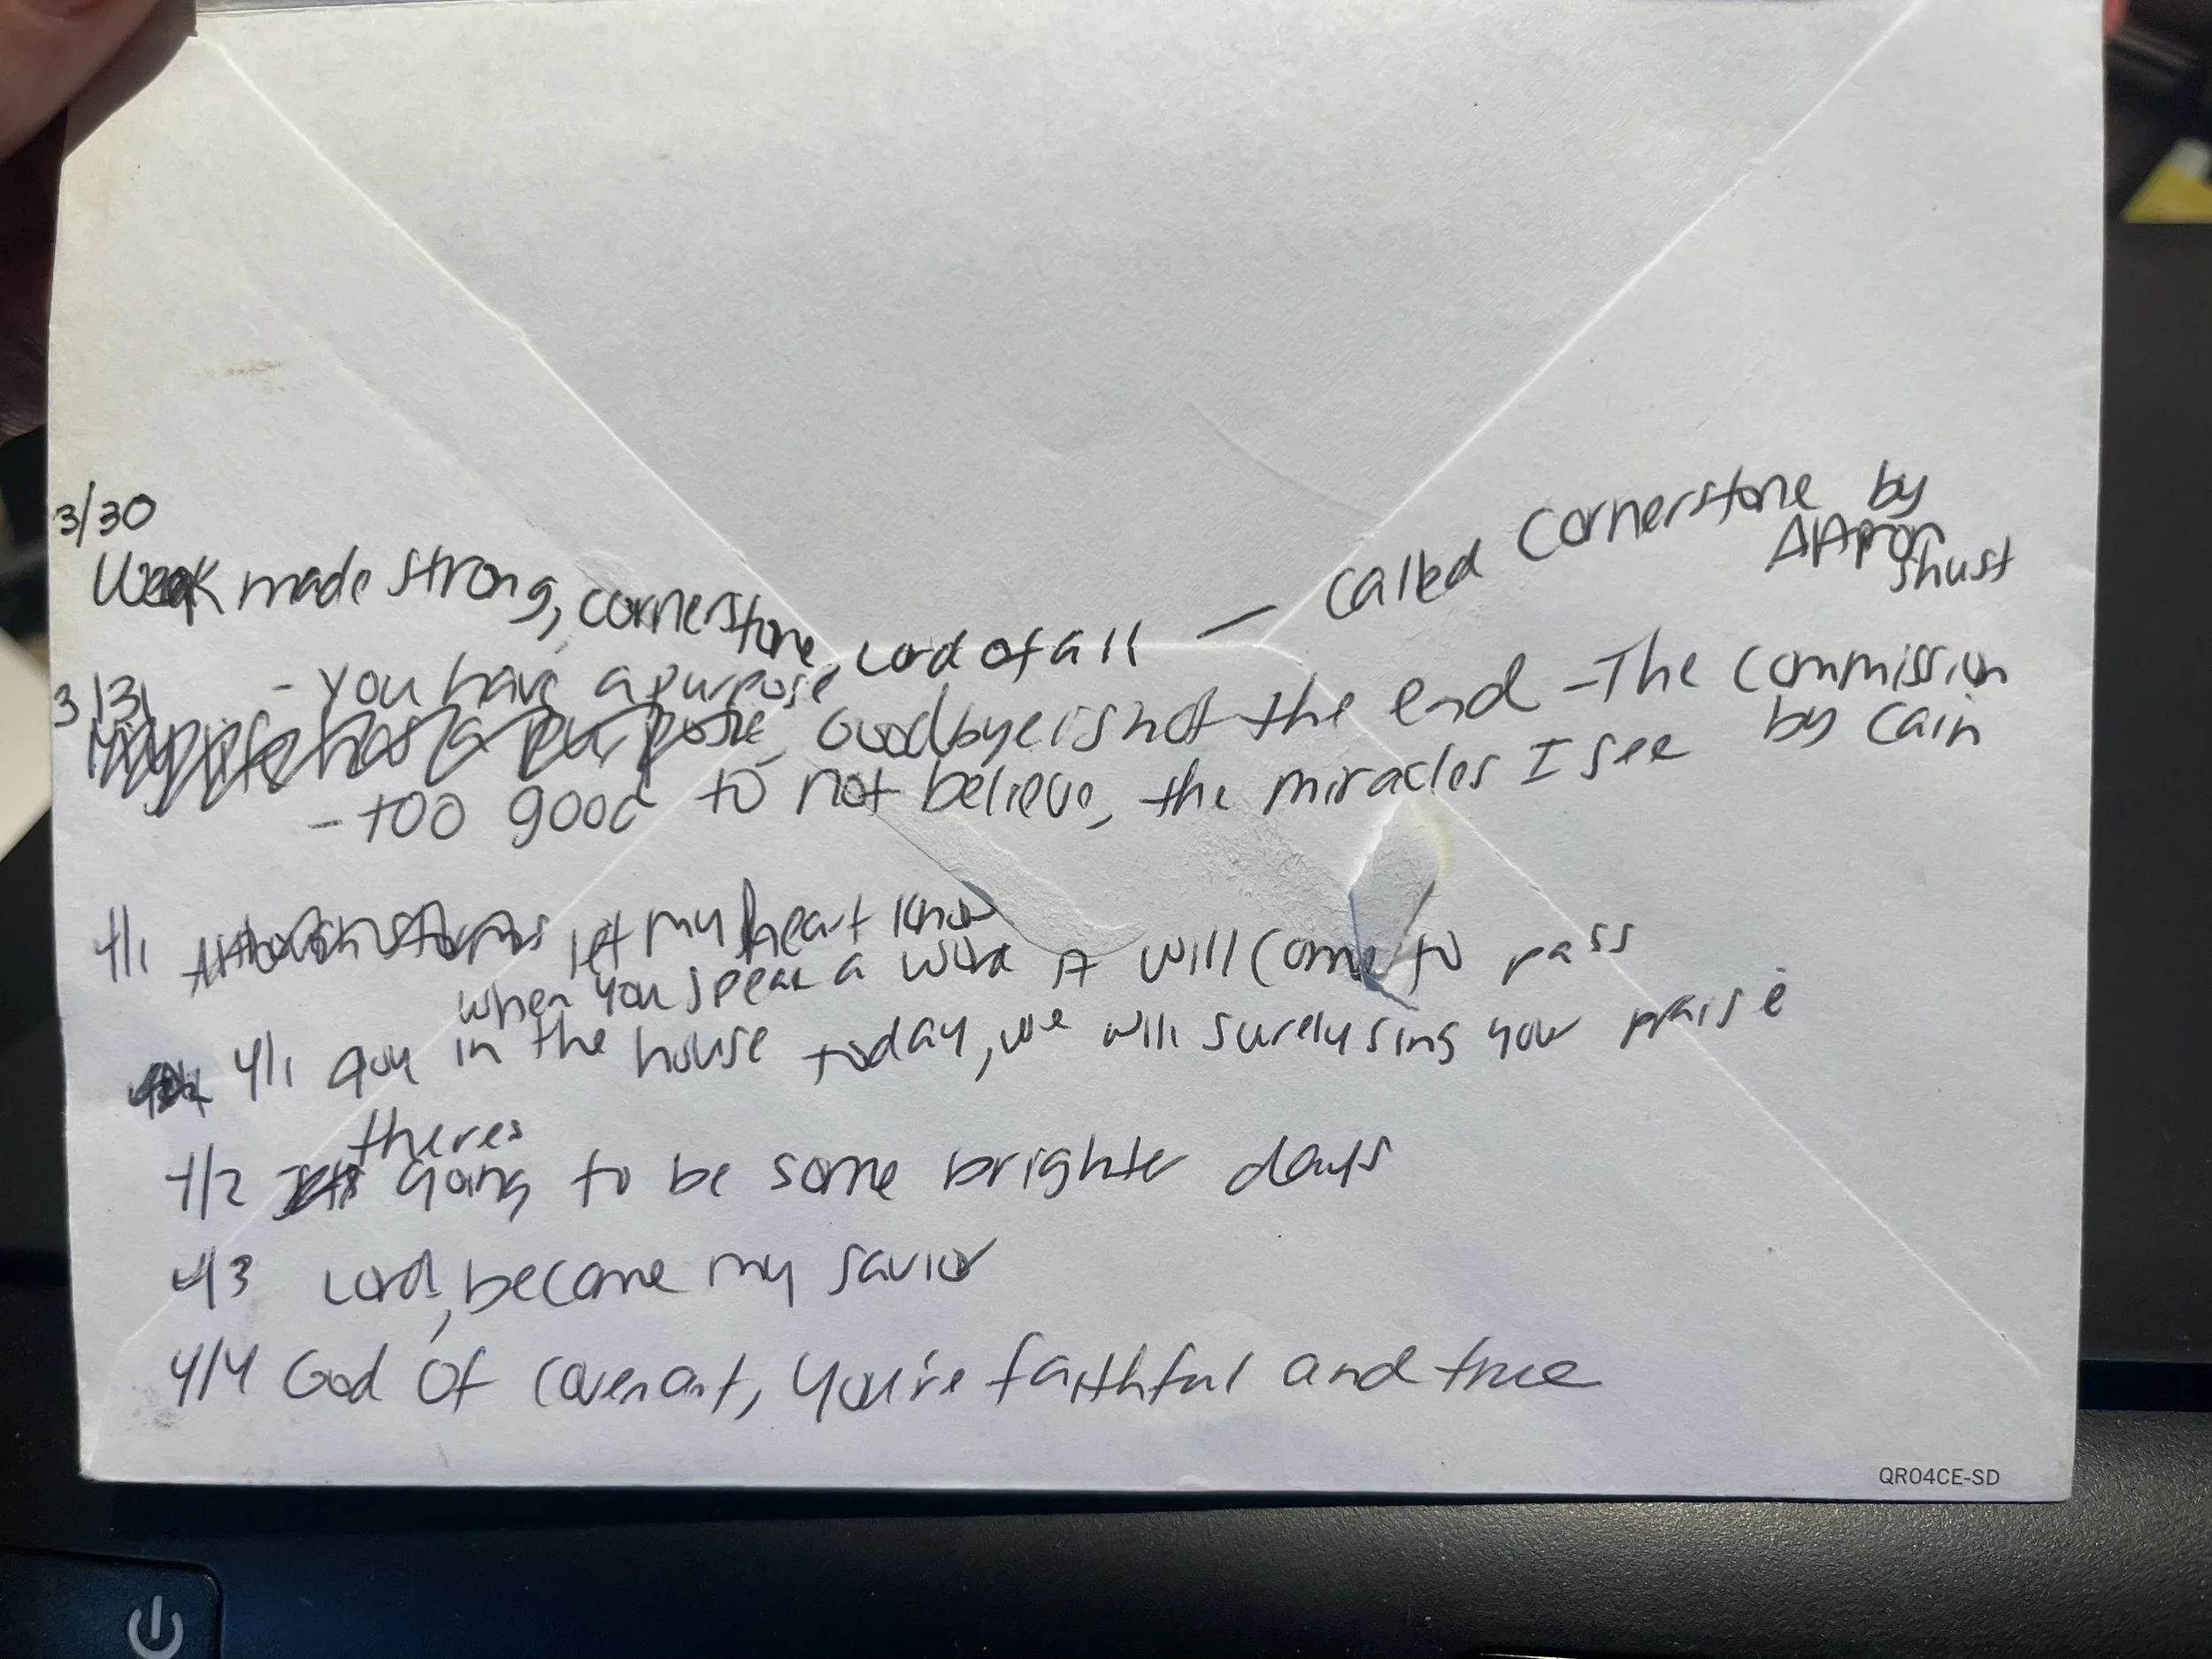 3/30
Weak made strong, cornerstone, Lord of all — called Cornerstone by
AAron
Shust
3/31 - You have a purpose
Goodbye is not the end - The Commission
by Cain
- too good to not believe, the miracles I see
4/1 let my heart know
when you speak a word it will come to pass
4/1 in the house today, we will surely sing your praise
theres
4/2 going to be some brighter days
4/3 Lord, become my savior
4/4 God of covenant, you're faithful and true
QR04CE-SD